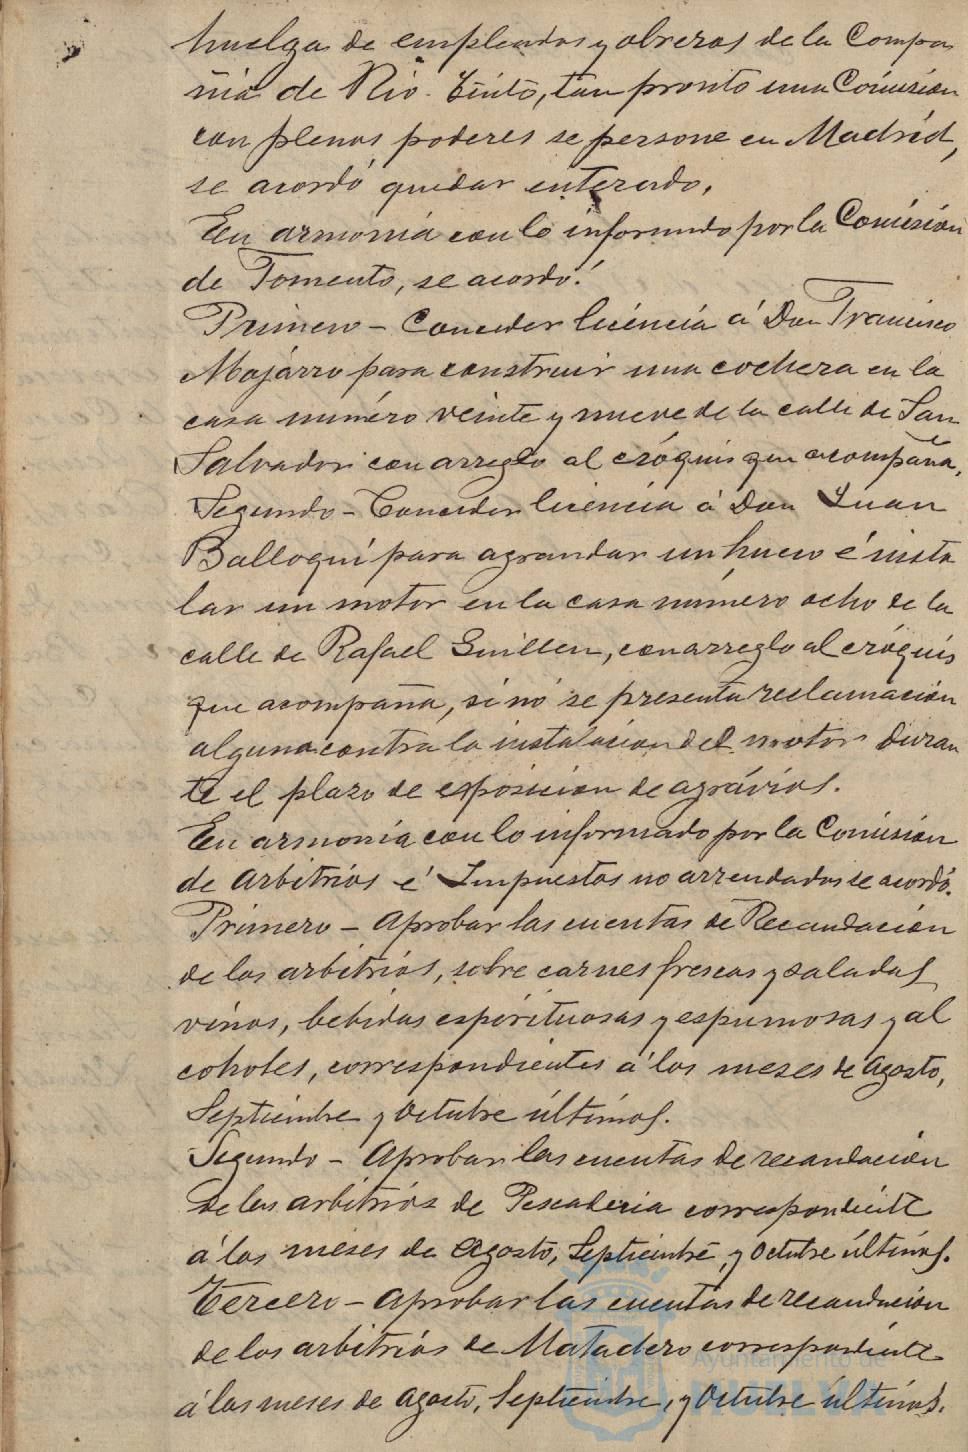 huelga de empleados y obreros de la Compa
ñia de Rio-Tinto, tan pronto una Comision
con plenos poderes se persone en Madrid,
se acordó quedar enterado.
En armonía con lo informado por la Comisión
de Fomento, se acordó:
Primero - Conceder licencia á Don Francisco
Mojarro para construir una cochera en la
casa número veinte y nueve de la calle de San
Salvador con arreglo al cróquis que acompaña.
Segundo - Conceder licencia á Don Juan
Balloqui para agrandar un hueco é insta
lar un motor en la casa número ocho de la
calle de Rafael Guillen, con arreglo al cróquis
que acompaña, si nó se presenta reclamación
alguna contra la instalación del motor duran
te el plazo de esposicion de agrávios.
En armonia con lo informado por la Comisión
de arbitrios é Impuestos no arrendados se acordó.
Primero - Aprobar las cuentas de Recaudación
de los arbitrios, sobre carnes frescas y saladas
vinos, bebidas espirituosas y espumosas y al
coholes, correspondientes á los meses de Agosto,
Septiembre y Octubre últimos.
Segundo - Aprobar las cuentas de recaudación
de los arbitrios de Pescaderia correspondiente
á los meses de Agosto, Septiembre, y Octubre últimos.
Tercero - Aprobar las cuentas de recaudacion
de los arbitrios de Matadero correspondiente
á los meses de Agosto, Septiembre, y Octubre últimos.
Ayuntamiento de
HUELVA